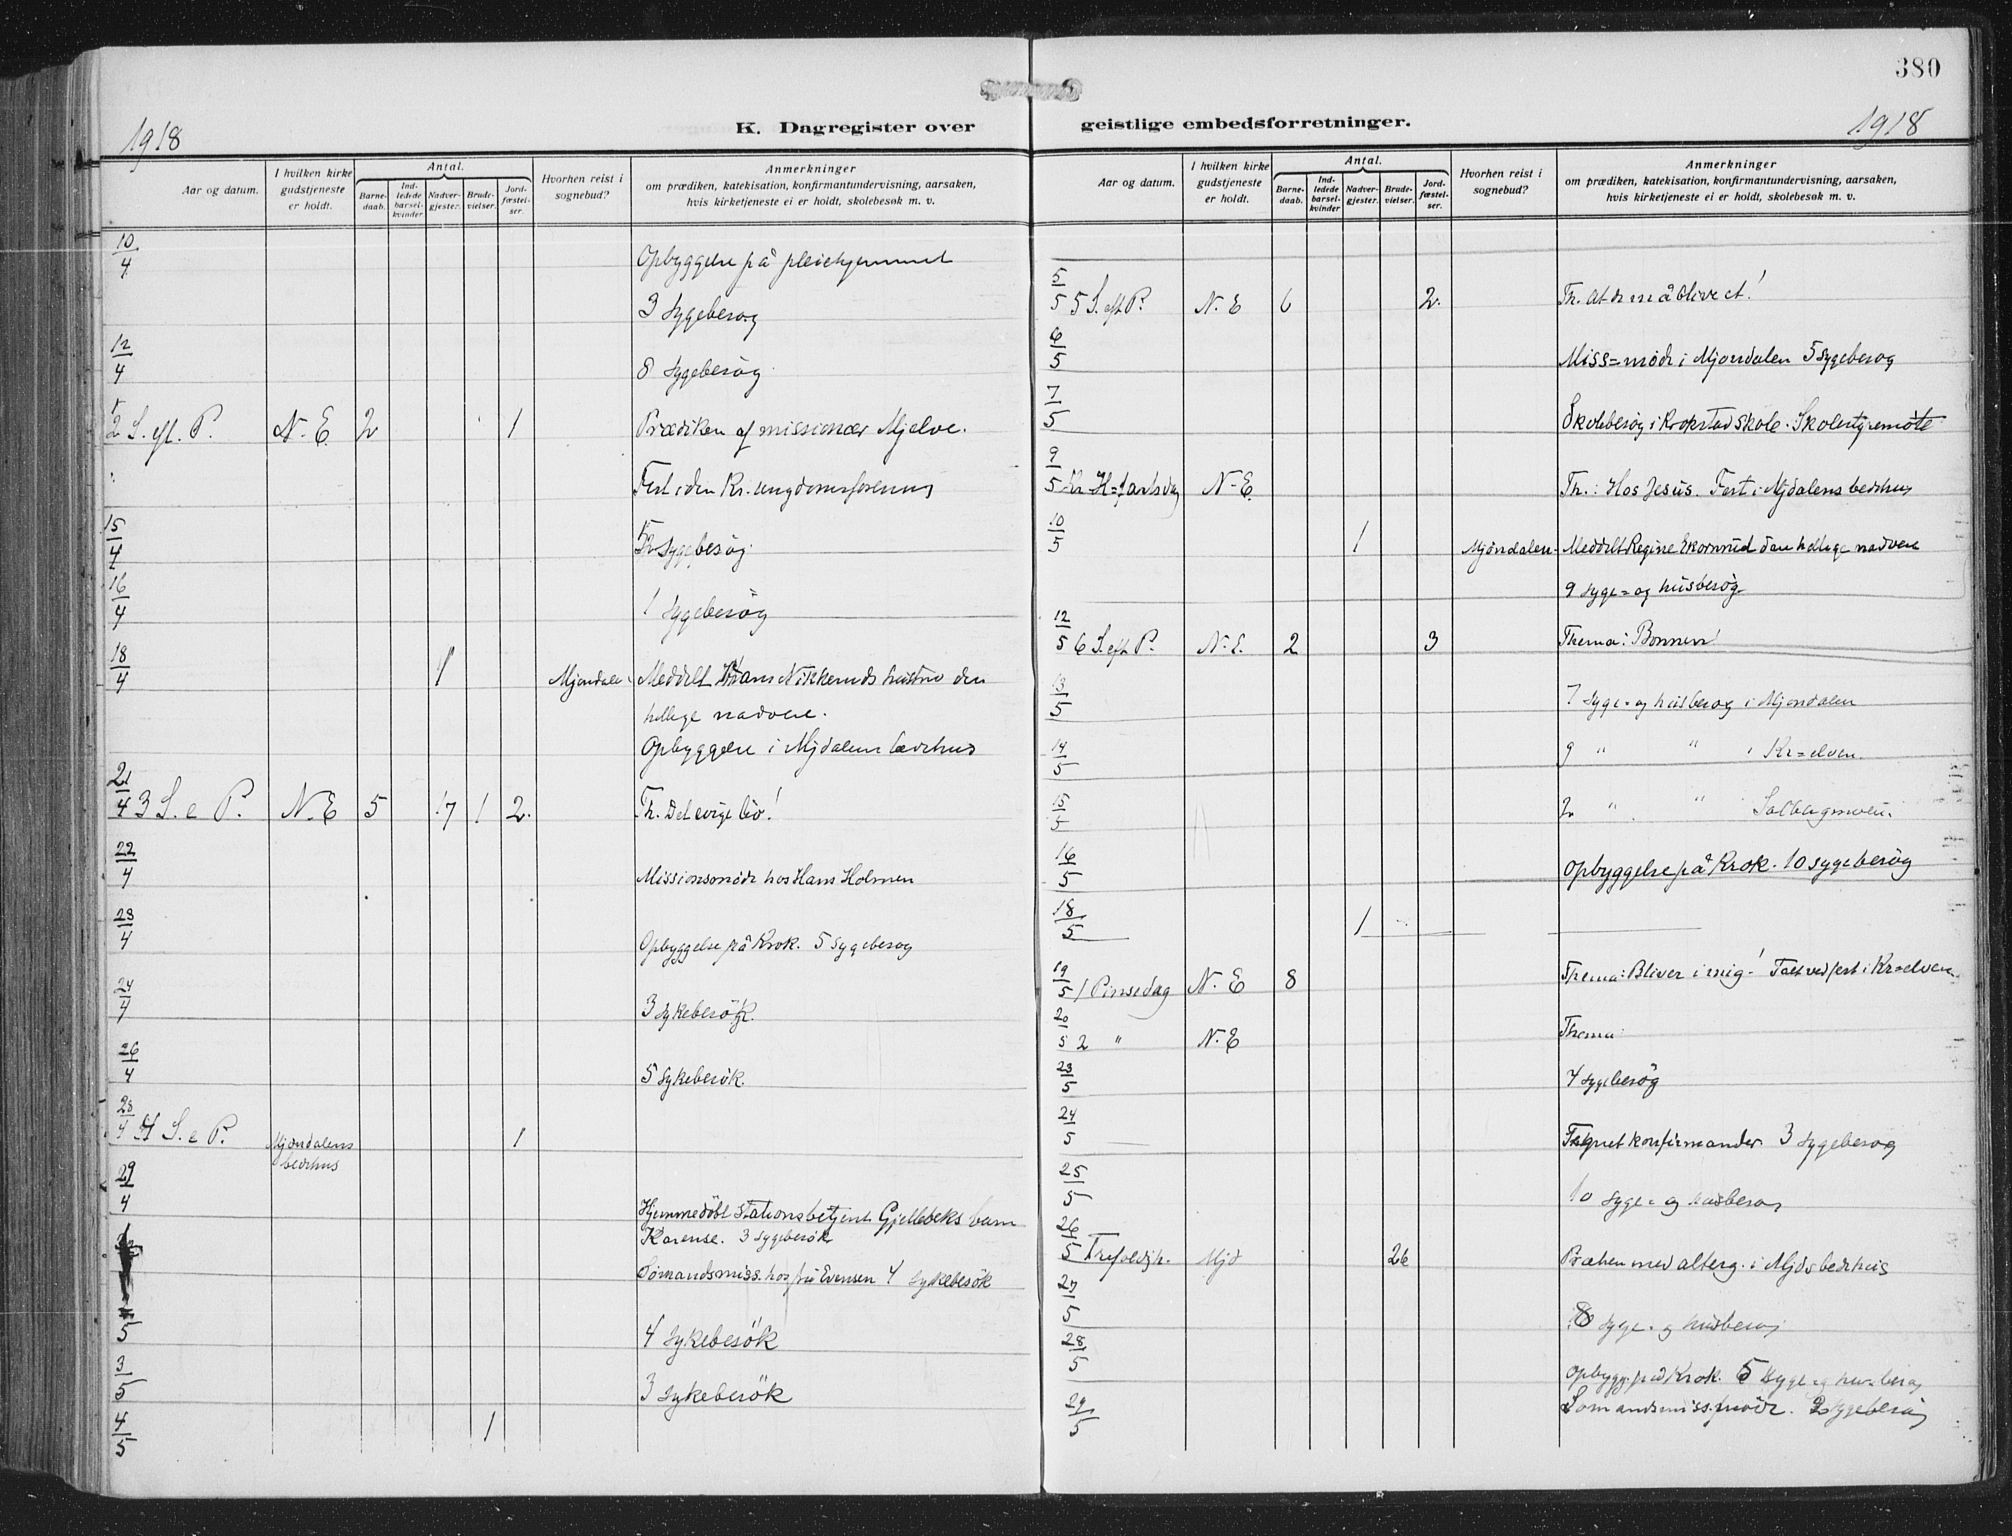 380
1918
K. Dagregister over
Aar og datum.
I hvilken kirke gudstjeneste er holdt.
Antal.
Barne-daab.
Ind-ledede barsel-kvinder
Nadver-gjester.
Brude-vielser.
Jord-fæstel-ser.
Hvorhen reist i sognebud?
Anmerkninger
om prædiken, katekisation, konfirmantundervisning, aarsaken,
hvis kirketjeneste ei er holdt, skolebesøk m. v.
10/4 Opbyggelse på pleiehjemmet
3 Sygebesøg
12/4 8 Sygebesøg
2 S. eft. P. N. E 2 1 Prædiken af missionær Mjelve.
Fest i den Kr. ungdomsforening
15/4 Sygebesøg
16/4 1 Sygebesøg
18/4 1 Mjøndalen Meddelt Hans Nikkeruds hustru den
hellige nadvere.
Opbyggelse i Mjdalens bedehus
21/4 3 S. e P. N. E 5 17 1 2. Th. Det evige liv!
22/4 Missionsmøde hos Hans Holmen
23/4 Opbyggelse på Krok. 5 Sygebesøg
24/4 3 Sykebesök
26/4 5 Sykebesök.
28/4 4 S. e P. Mjøndalens bedehus 1
29/4 Hjemmedöbt Stationsbetjent Gjellebeks barn
Karense. 3 Sygebesök
Sömandsmiss. hos fru Evensen 4 Sykebesök
/5 4 Sykebesök
3/5 3 Sykebesök
4/5 1
1918
geistlige embedsforretninger.
Aar og datum.
I hvilken kirke gudstjeneste er holdt.
Antal.
Barne-daab.
Ind-ledede barsel-kvinder
Nadver-gjester.
Brude-vielser.
Jord-fæstel-ser.
Hvorhen reist i sognebud?
Anmerkninger
om prædiken, katekisation, konfirmantundervisning, aarsaken,
hvis kirketjeneste ei er holdt, skolebesøk m. v.
5/5 5 S. eft P. N. E 6 2. Th. at de må blive et!
6/5 Miss=møde i Mjøndalen 5 Sygebesøg
7/5 Skolebesøg i Krokstad skole. Skolestyremöte
9/5 Kr H=fartsdag N. E. Th.: Hos Jesus. Fest i Mjdalens bedehus
10/5 1 Mjøndalen. Meddelt Regine Ekornrud den hellige nadvere
9 Syge= og husbesøg
12/5 6 S. eft P. N. E. 2 3 Thema: Bønnen!
13/5 7 Syge= og husbesøg i Mjøndalen
14/5 9 " " i Kr=elven.
15/5 2 " " Solbergmoen.
16/5 Opbyggelse på Krok. 10 sygebesøg
18/5 1
19/5 1 Pinsedag N. E 8 Thema: Bliver i mig! Talt ved fest i Kr=elven.
20/5 2 " N. E Thema:
23/5 4 Sygebesøg
24/5 Tegnet konfirmander. 3 Sygebesøg
25/5 10 Syge= og husbesøg
26/5 Trefoldigh. Mjd 26 Præken med alterg. i Mjds bedehus
27/5 8 Syge= og husbesøg
28/5 Opbygg. på Krok. 5 Syge= og husbesøg
29/5 Sømandsmiss.møde. 2 Sygebesøg